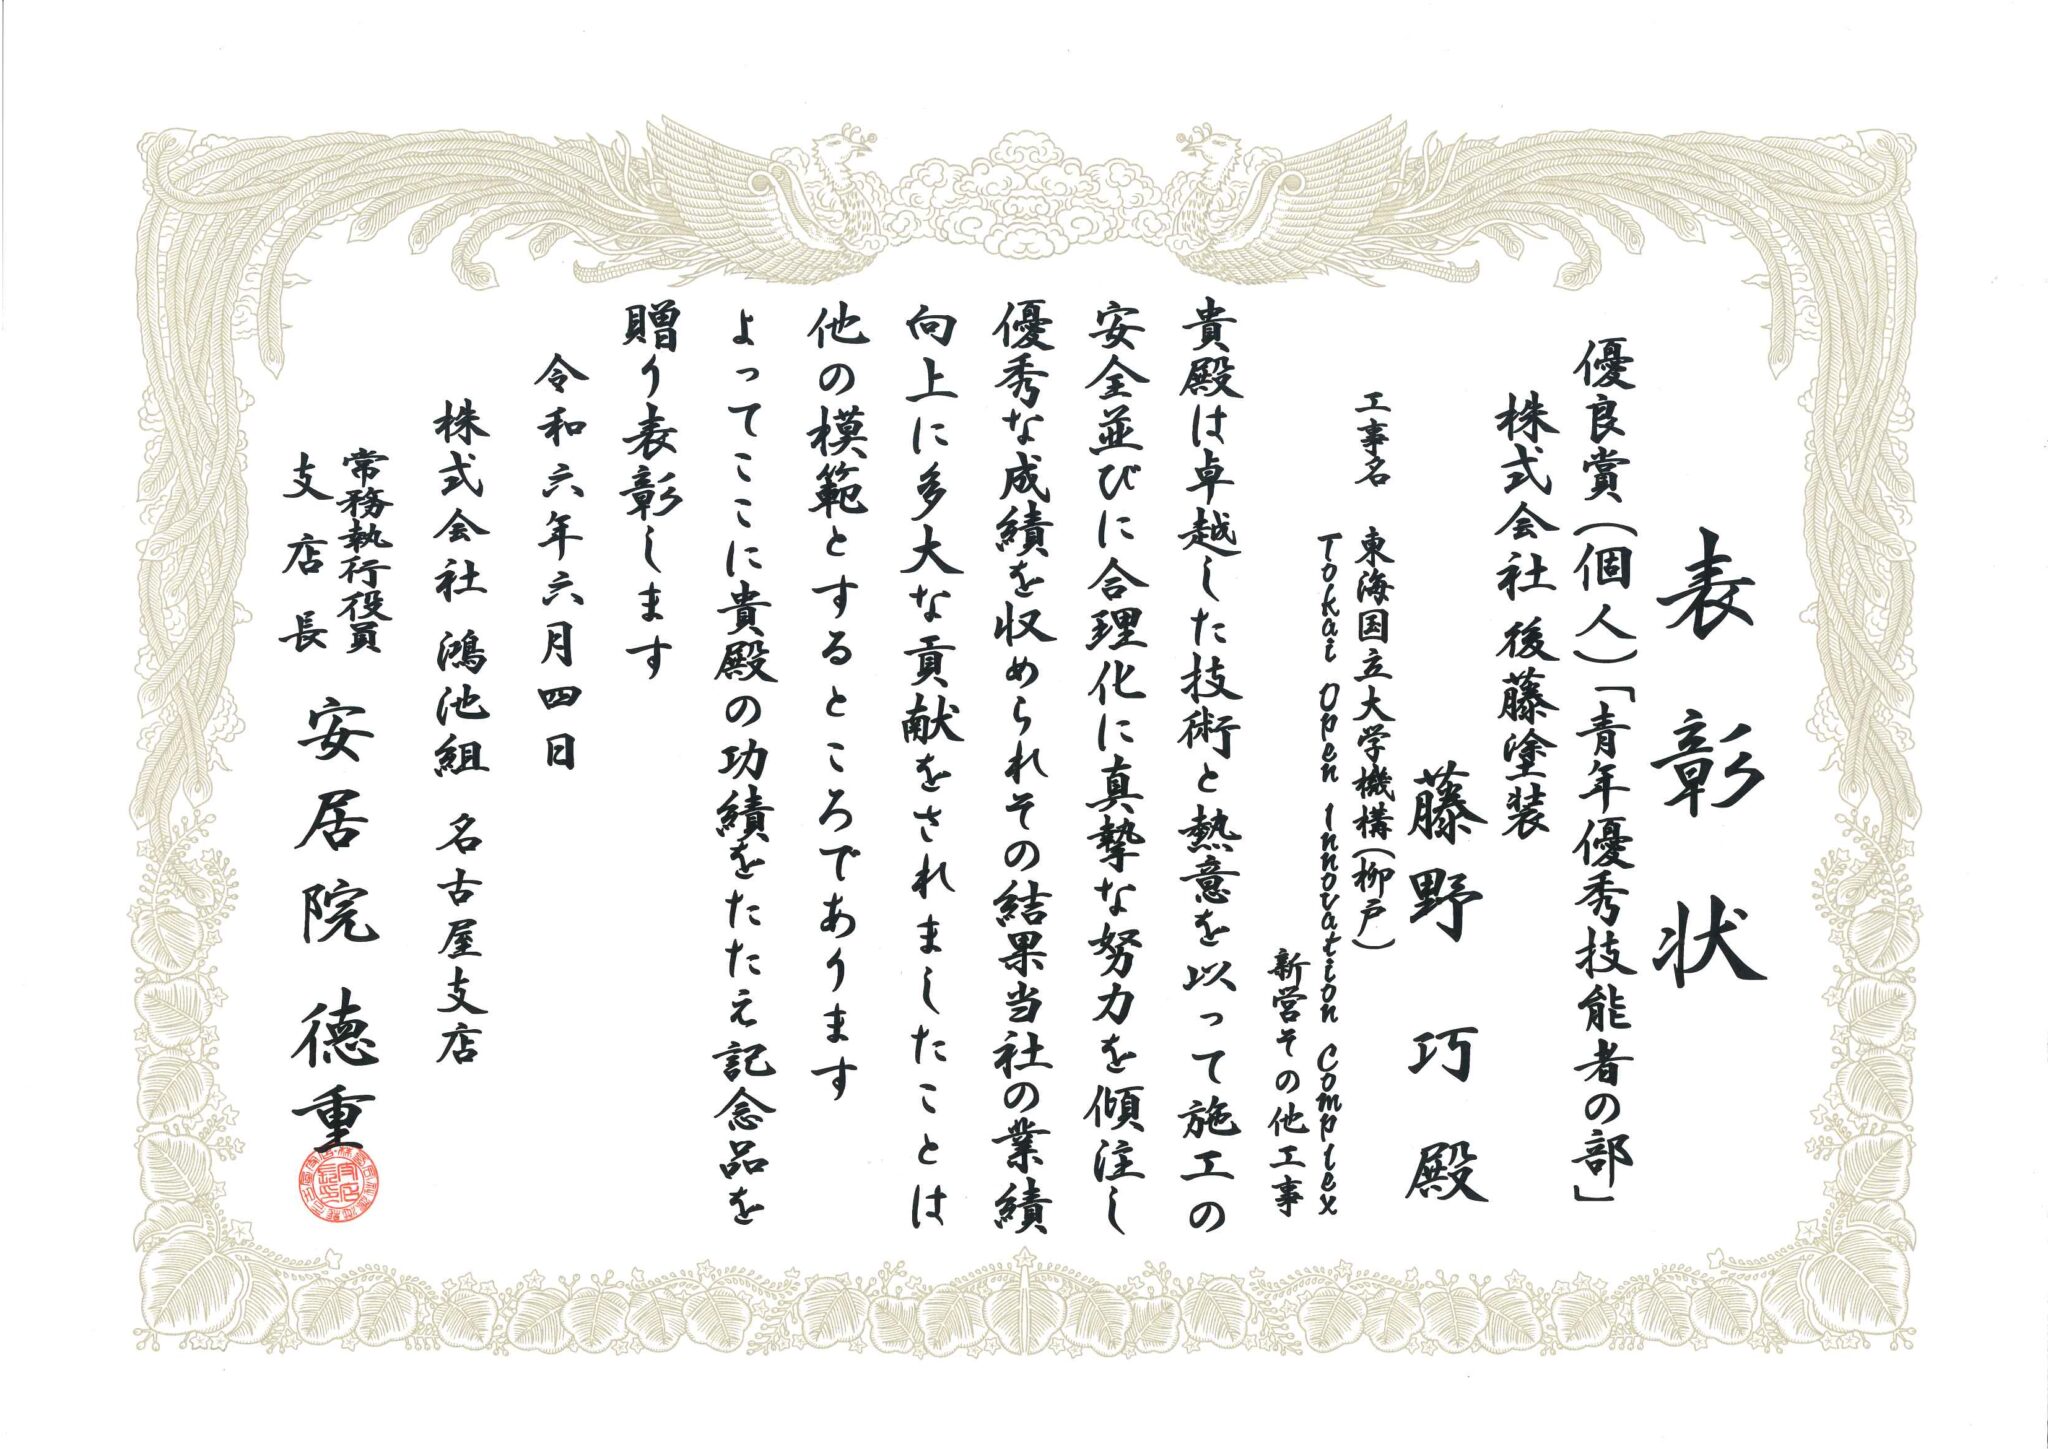 表彰状
優良賞（個人）「青年優秀技能者の部」
株式会社 後藤塗装
藤野 巧 殿
工事名 東海国立大学機構（柳戸）
Tokai Open Innovation Complex
新営その他工事
貴殿は卓越した技術と熱意を以って施工の
安全並びに合理化に真摯な努力を傾注し
優秀な成績を収められその結果当社の業績
向上に多大な貢献をされましたことは
他の模範とするところであります
よってここに貴殿の功績をたたえ記念品を
贈り表彰します
令和六年六月四日
株式会社 鴻池組 名古屋支店
常務執行役員
支店長 安居院 徳重